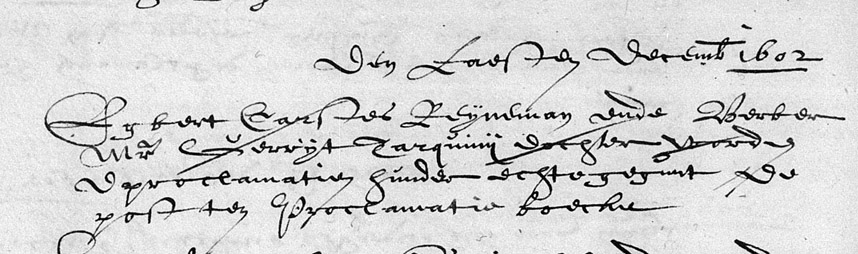 Den Laesten Decemb 1602
Egbert Carstes Reyneman ende Berber
Mr Gerryt Tarquinij dochter worden
d proclamatien hunder echte gegunt De
post ten Proclamatie boecke